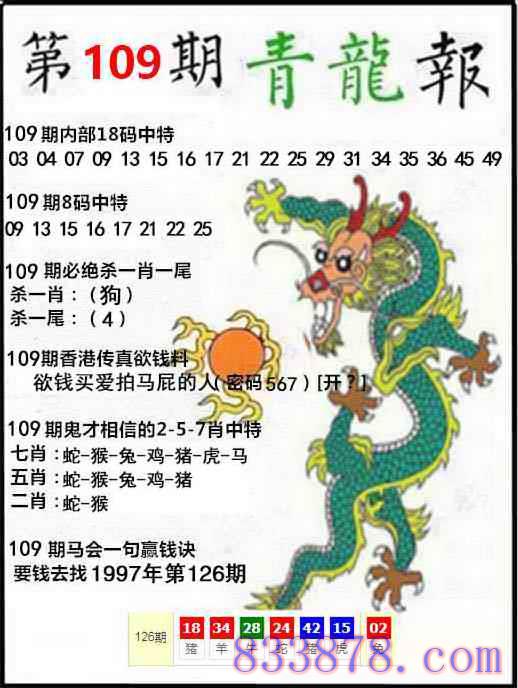 第109期 青龍報
109期内部18码中特
03 04 07 09 13 15 16 17 21 22 25 29 31 34 35 36 45 49
109期8码中特
09 13 15 16 17 21 22 25
109 期必绝杀一肖一尾
杀一肖:(狗)
杀一尾:(4)
109期香港传真欲钱料
欲钱买爱拍马屁的人(密码567)[开?]
109期鬼才相信的2-5-7肖中特
七肖:蛇-猴-兔-鸡-猪-虎-马
五肖:蛇-猴-兔-鸡-猪
二肖:蛇-猴
109 期马会一句赢钱诀
要钱去找1997年第126期
126期 18 34 28 24 42 15 02
猪 羊 牛 蛇 猪 虎 兔
833878.com